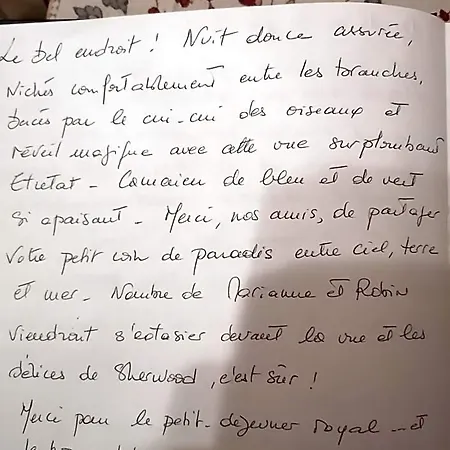 Le bel endroit ! Nuit douce assurée,
Nichés confortablement entre les branches,
bercés par le cui-cui des oiseaux et
réveil magique avec cette vue surplombant
Etretat - Camaïeu de bleu et de vert
si apaisant - Merci, nos amis, de partager
votre petit coin de paradis entre ciel, terre
et mer - Nombre de Marianne et Robin
viendront s'extasier devant la vue et les
délices de Sherwood, c'est sûr !
Merci pour le petit-déjeuner royal -- et